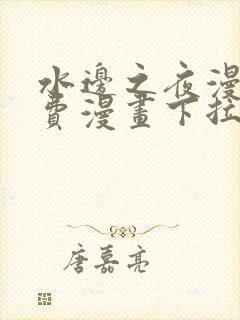 水邊之夜漫
費漫畫下拉
唐嘉亮